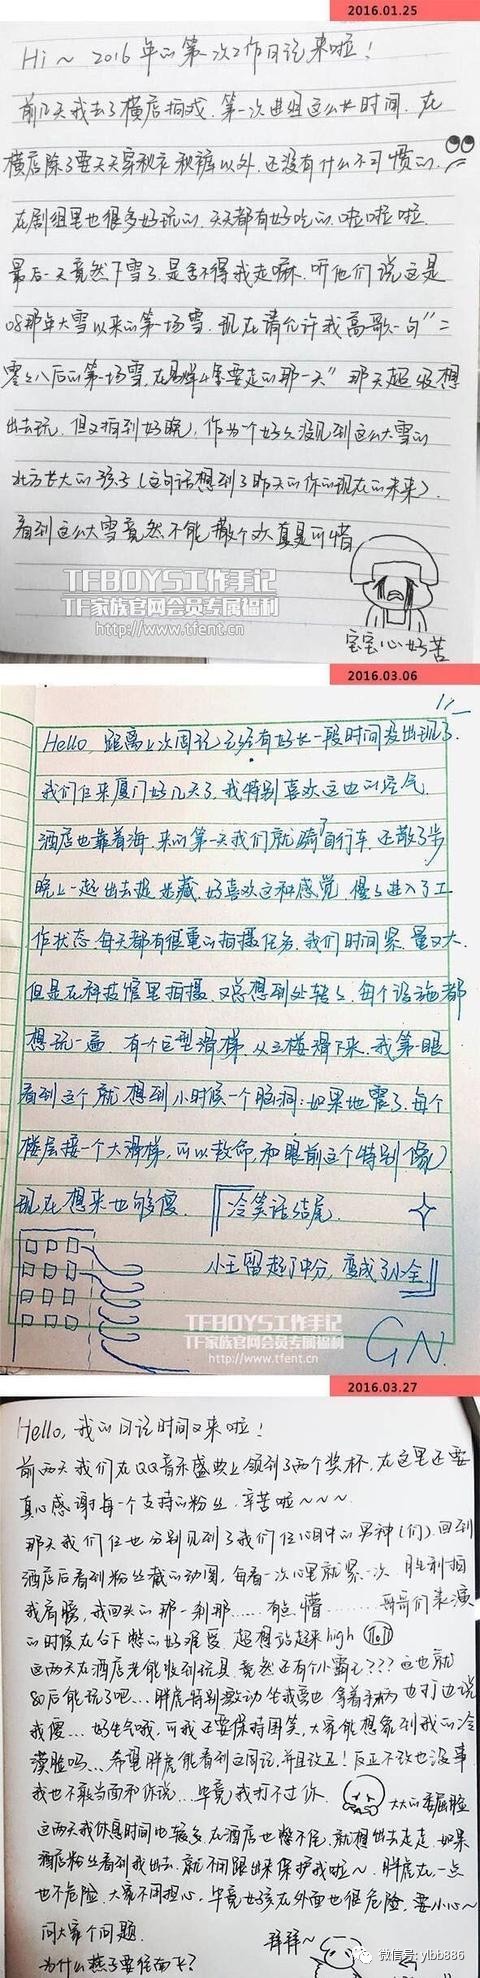 2016.01.25
Hi～2016年的第一次工作日记来啦！
前几天我去了横店拍戏.第一次进组这么长时间.在
横店除了要天天穿秋衣秋裤以外.还没有什么不习惯的.
在剧组里也很多好玩的.天天都有好吃的.啦啦啦.
最后一天竟然下雪了.是舍不得我走嘛.听他们说这是
08那年大雪以来的第一场雪.现在请允许我高歌一句"二
零零八后的第一场雪.在易烊千玺要走的那一天"那天超级想
出去玩.但又拍到好晚.作为一个好久没见到这么大雪的
北方长大的孩子(这句话想到了昨天的你的现在的未来).
看到这么大雪竟然不能撒个欢真是可惜
TFBOYS工作手记
TF家族官网会员专属福利
http://www.tfent.cn
宝宝心好苦
2016.03.06
Hello,距离上次周记已经有好长一段时间没出现了.
我们仨来厦门好几天了.我特别喜欢这边的空气
酒店也靠着海.来的第一天我们就骑了自行车.还散了步
晚上一起出去捉迷藏.好喜欢这种感觉.慢慢进入了工
作状态.每天都有很重的拍摄任务.我们时间紧.量又大.
但是在科技馆里拍摄.又总想到处转转.每个设施都
想玩一遍.有个巨型滑梯.从三楼滑下来.我第一眼
看到这个就想到小时候一个脑洞:如果地震了.每个
楼层接一个大滑梯,可以救命,和眼前这个特别像)
现在想来也够傻.
冷笑话结尾.
小王留起了中分,变成了小全
TFBOYS工作手记
TF家族官网会员专属福利
http://www.tfent.cn
GN.
2016.03.27
Hello,我的日记时间又来啦！
前两天我们在QQ音乐盛典上领到了两个奖杯.在这里还要
真心感谢每一个支持的粉丝.辛苦啦～～～
那天我们仨也分别见到了我们仨心目中的男神(们).回到
酒店后看到粉丝截的动图,每看一次心里就紧一次.胜利拍
我肩膀,我回头的那一刹那......有点懵......哥哥们表演
的时候在台下憋的好难受.超想站起来high
这两天在酒店老能收到玩具.竟然还有个小霸王???这也就
80后能玩了吧...胖虎特别激动坐我旁边拿着手柄边打边说
我傻...好生气哦,可我还要保持围笑,大家能想象到我的冷
漠脸吗...希望胖虎能看到这周记,并且改正!反正不改也没事.
我也不敢当面和你说...毕竟我打不过你.
大大的委屈脸
这两天我休息时间比较多.在酒店也憋不住.就想出去走走.如果
酒店粉丝看到我出去.就不用跟出来保护我啦～.胖虎在一点
也不危险.大家不用担心.毕竟女孩在外面也很危险.要小心～
问大家个问题.
为什么燕子要往南飞?
拜拜～
微信号: ylbb886